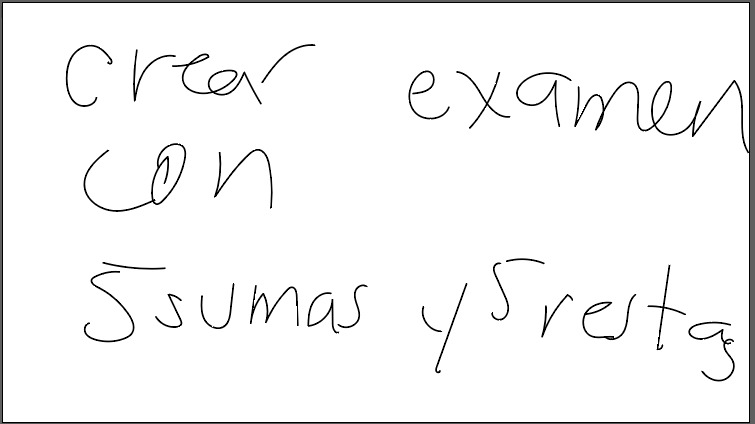 crear examen
con
5 sumas y 5 restas